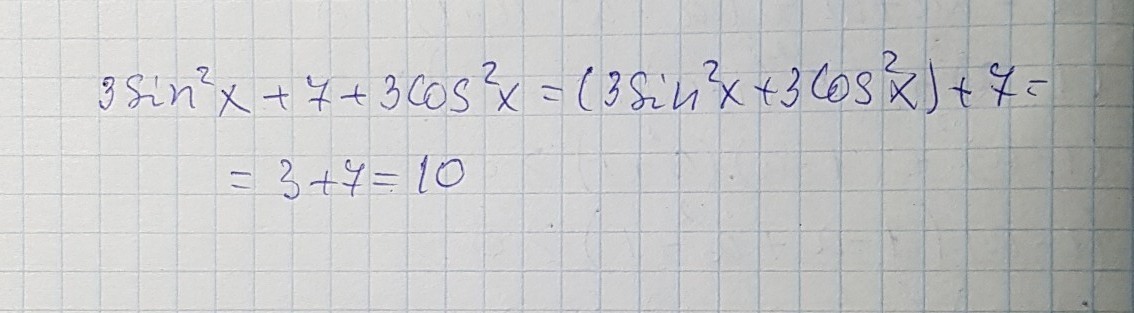 3sin²x + 7 + 3cos²x = (3sin²x + 3cos²x) + 7 =
= 3 + 7 = 10